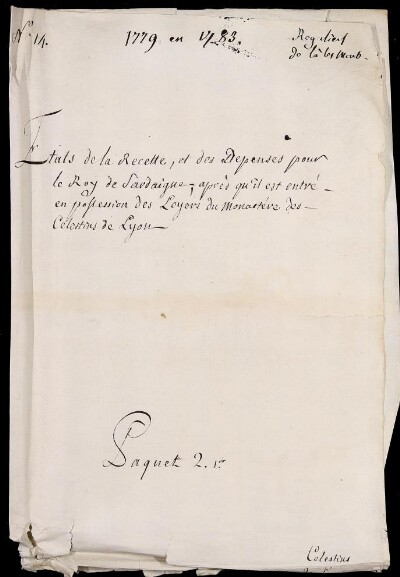 N.º 14.
1779 en 1783.
Etats de la Recette, et des Depenses pour
le Roy de Sardaigne, après qu'il est entré
en possession des Loyers du Monastère des
Célestins de Lyon
Paquet 2.
Celestins